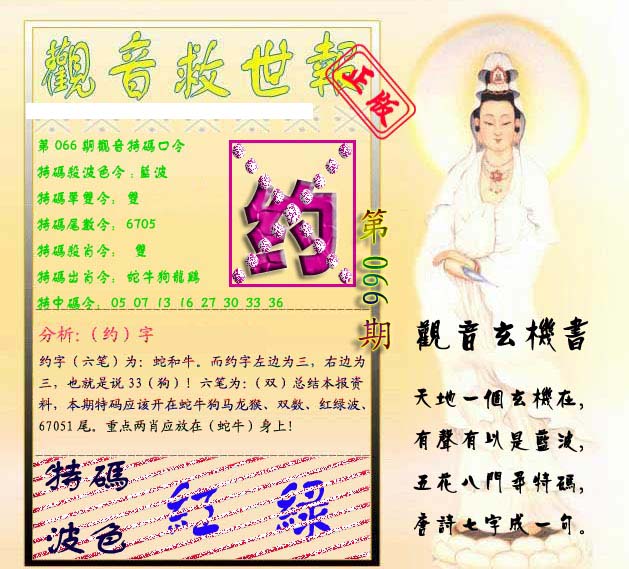 觀音救世報
正版
第066期觀音特碼口令
特碼殺波色令:藍波
特碼單雙令: 雙
特碼尾數令: 6705
特碼殺肖令: 雙
特碼出肖令: 蛇牛狗龍鷄
特中碼令: 05 07 13 16 27 30 33 36
约
第066期
分析:(约)字
约字(六笔)为:蛇和牛。而约字左边为三,右边为
三,也就是说33(狗)!六笔为:(双)总结本报资
料,本期特码应该开在蛇牛狗马龙猴、双数、红绿波、
67051尾。重点两肖应放在(蛇牛)身上!
特碼
波色
紅 綠
觀音玄機書
天地一個玄機在,
有聲有以是藍波,
五花八門尋特碼,
唐詩七字成一句。